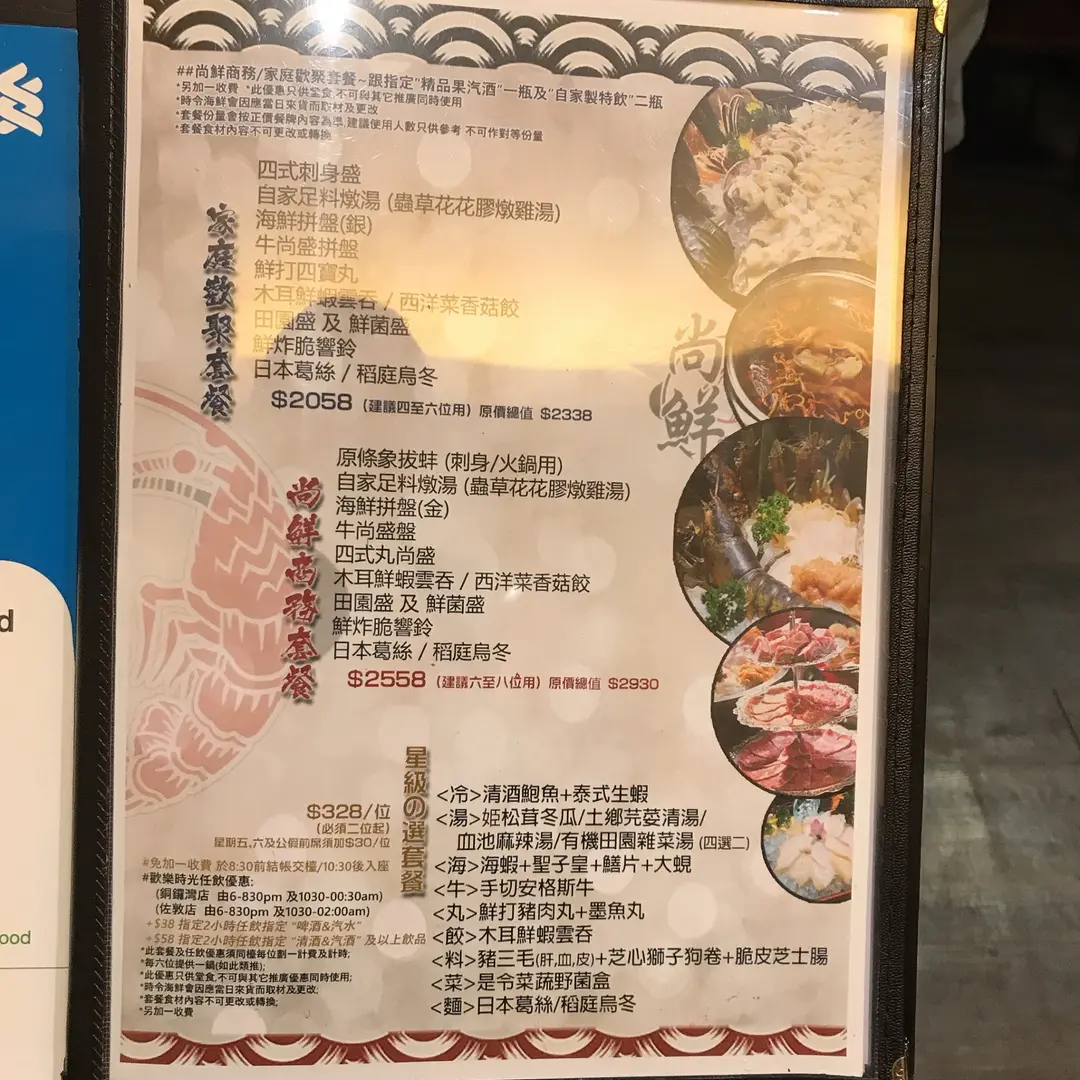 ##尚鮮商務/家庭歡聚套餐~跟指定"精品果汽酒"一瓶及"自家製特飲"二瓶
*另加一收費 *此優惠只供堂食,不可與其它推廣同時使用
*時令海鮮會因應當日來貨而取材及更改
*套餐份量會按正價餐牌內容為準,建議使用人數只供參考 不可作對等份量
*套餐食材內容不可更改或轉換
家庭歡聚套餐
四式刺身盛
自家足料燉湯 (蟲草花花膠燉雞湯)
海鮮拼盤(銀)
牛尚盛拼盤
鮮打四寶丸
木耳鮮蝦雲吞 / 西洋菜香菇餃
田園盛 及 鮮菌盛
鮮炸脆響鈴
日本葛絲 / 稻庭烏冬
$2058 (建議四至六位用) 原價總值 $2338
尚鮮
尚鮮商務套餐
原條象拔蚌 (刺身/火鍋用)
自家足料燉湯 (蟲草花花膠燉雞湯)
海鮮拼盤(金)
牛尚盛盤
四式丸尚盛
木耳鮮蝦雲吞 / 西洋菜香菇餃
田園盛 及 鮮菌盛
鮮炸脆響鈴
日本葛絲 / 稻庭烏冬
$2558 (建議六至八位用) 原價總值 $2930
星級の選套餐
$328/位
(必須二位起)
星期五,六及公假前席須加$30/位
#免加一收費 於8:30前結帳交檯/10:30後入座
#歡樂時光任飲優惠:
(銅鑼灣店 由6-830pm 及1030-00:30am)
(佐敦店 由6-830pm 及1030-02:00am)
+$38 指定2小時任飲指定 "啤酒&汽水"
+$58 指定2小時任飲指定 "清酒&汽酒" 及以上飲品
*此套餐及任飲優惠須同檯每位劃一計費及計時;
*每六位提供一鍋(如此類推);
*此優惠只供堂食,不可與其它推廣優惠同時使用;
*時令海鮮會因應當日來貨而取材及更改;
*套餐食材內容不可更改或轉換;
*另加一收費
<冷>清酒鮑魚+泰式生蝦
<湯>姬松茸冬瓜/土鄉芫荽清湯/
血池麻辣湯/有機田園雜菜湯 (四選二)
<海>海蝦+聖子皇+鱔片+大蜆
<牛>手切安格斯牛
<丸>鮮打豬肉丸+墨魚丸
<餃>木耳鮮蝦雲吞
<料>豬三毛(肝,血,皮)+芝心獅子狗卷+脆皮芝士腸
<菜>是令菜蔬野菌盒
<麵>日本葛絲/稻庭烏冬
d
ood